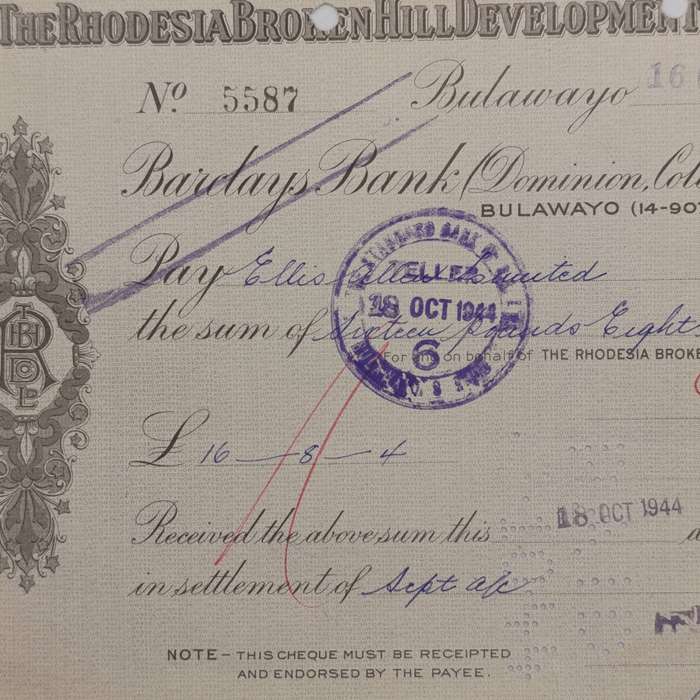 THE RHODESIA BROKEN HILL DEVELOPMENT
No 5587 Bulawayo 16
Barclays Bank (Dominion, Col
BULAWAYO (14-90
Pay Ellis Allen Limited
the sum of Sixteen Pounds Eight
For and on behalf of THE RHODESIA BROKE
THE STANDARD BANK OF
TELLER
18 OCT 1944
6
£ 16-8-4
Received the above sum this 18 OCT 1944
in settlement of Sept a/c
NOTE - THIS CHEQUE MUST BE RECEIPTED
AND ENDORSED BY THE PAYEE.